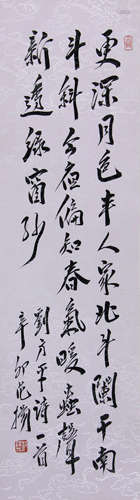 更深月色半人家北斗闌干南
斗斜今夜偏知春氣暖蟲聲
新透綠窗紗
劉方平詩一首
辛卯